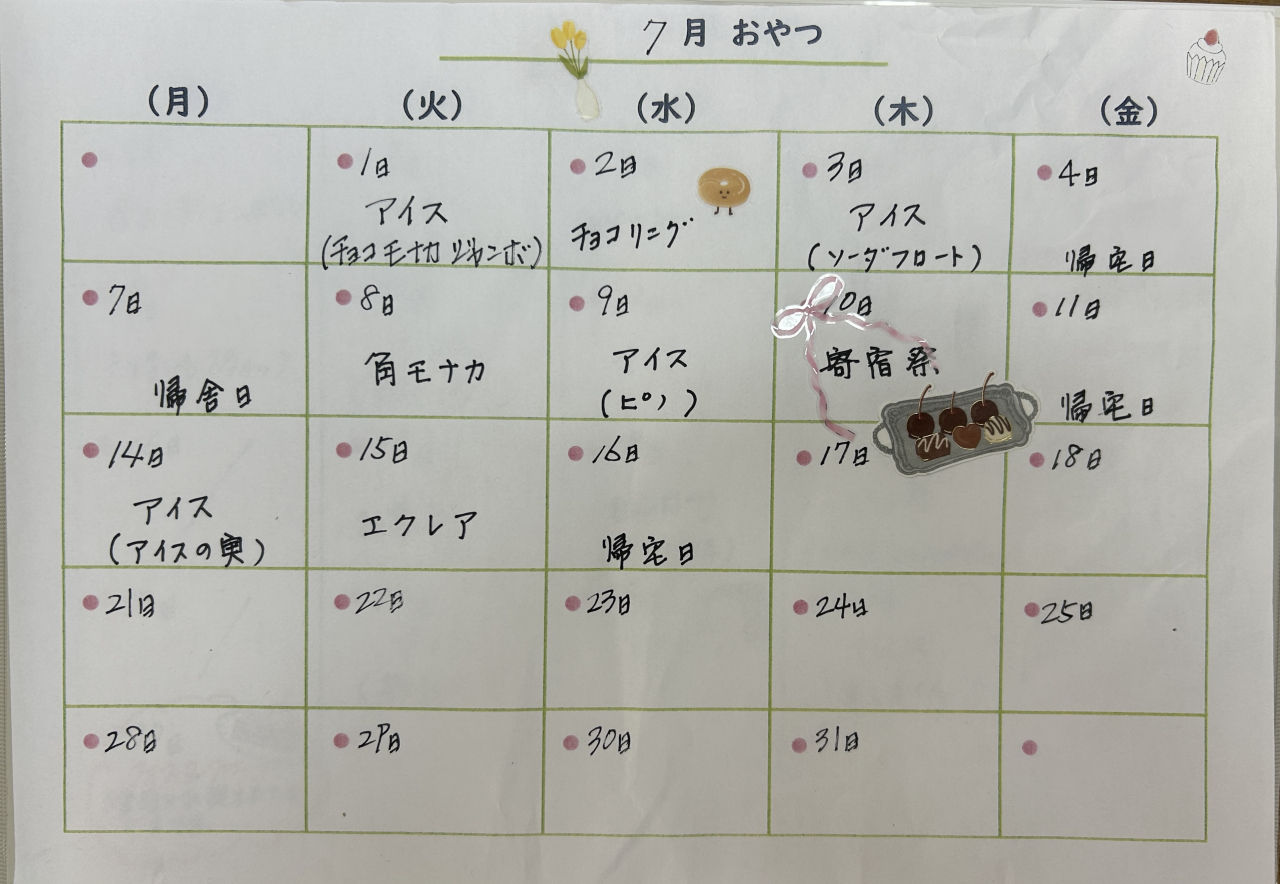 7月 おやつ
(月) (火) (水) (木) (金)
1日 2日 3日 4日
アイス
(チョコモナカジャンボ)
チョコリング
アイス
(ソーダフロート)
帰宅日
7日 8日 9日 10日 11日
帰舎日
角モナカ
アイス
(ピノ)
寄宿祭
帰宅日
14日 15日 16日 17日 18日
アイス
(アイスの実)
エクレア
帰宅日
21日 22日 23日 24日 25日
28日 29日 30日 31日